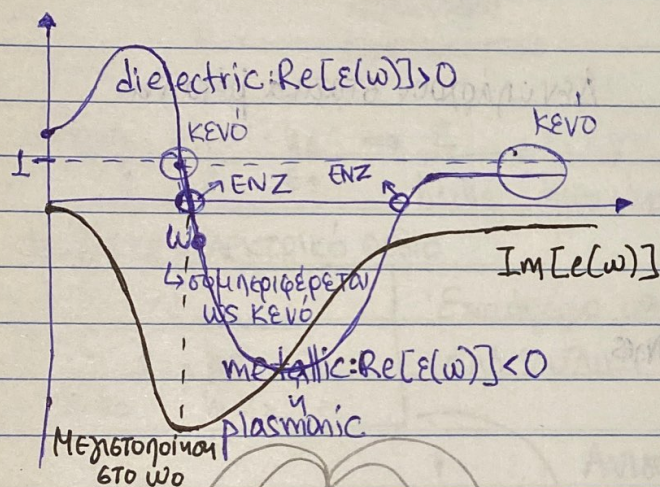 dielectric: Re[ε(ω)]>0
κενό
κενό
1
ENZ
ENZ
ω₀
Im[ε(ω)]
↳συμπεριφέρεται
ως κενό
metallic: Re[ε(ω)]<0
ή
plasmonic
Μεγιστοποίηση
στο ω₀